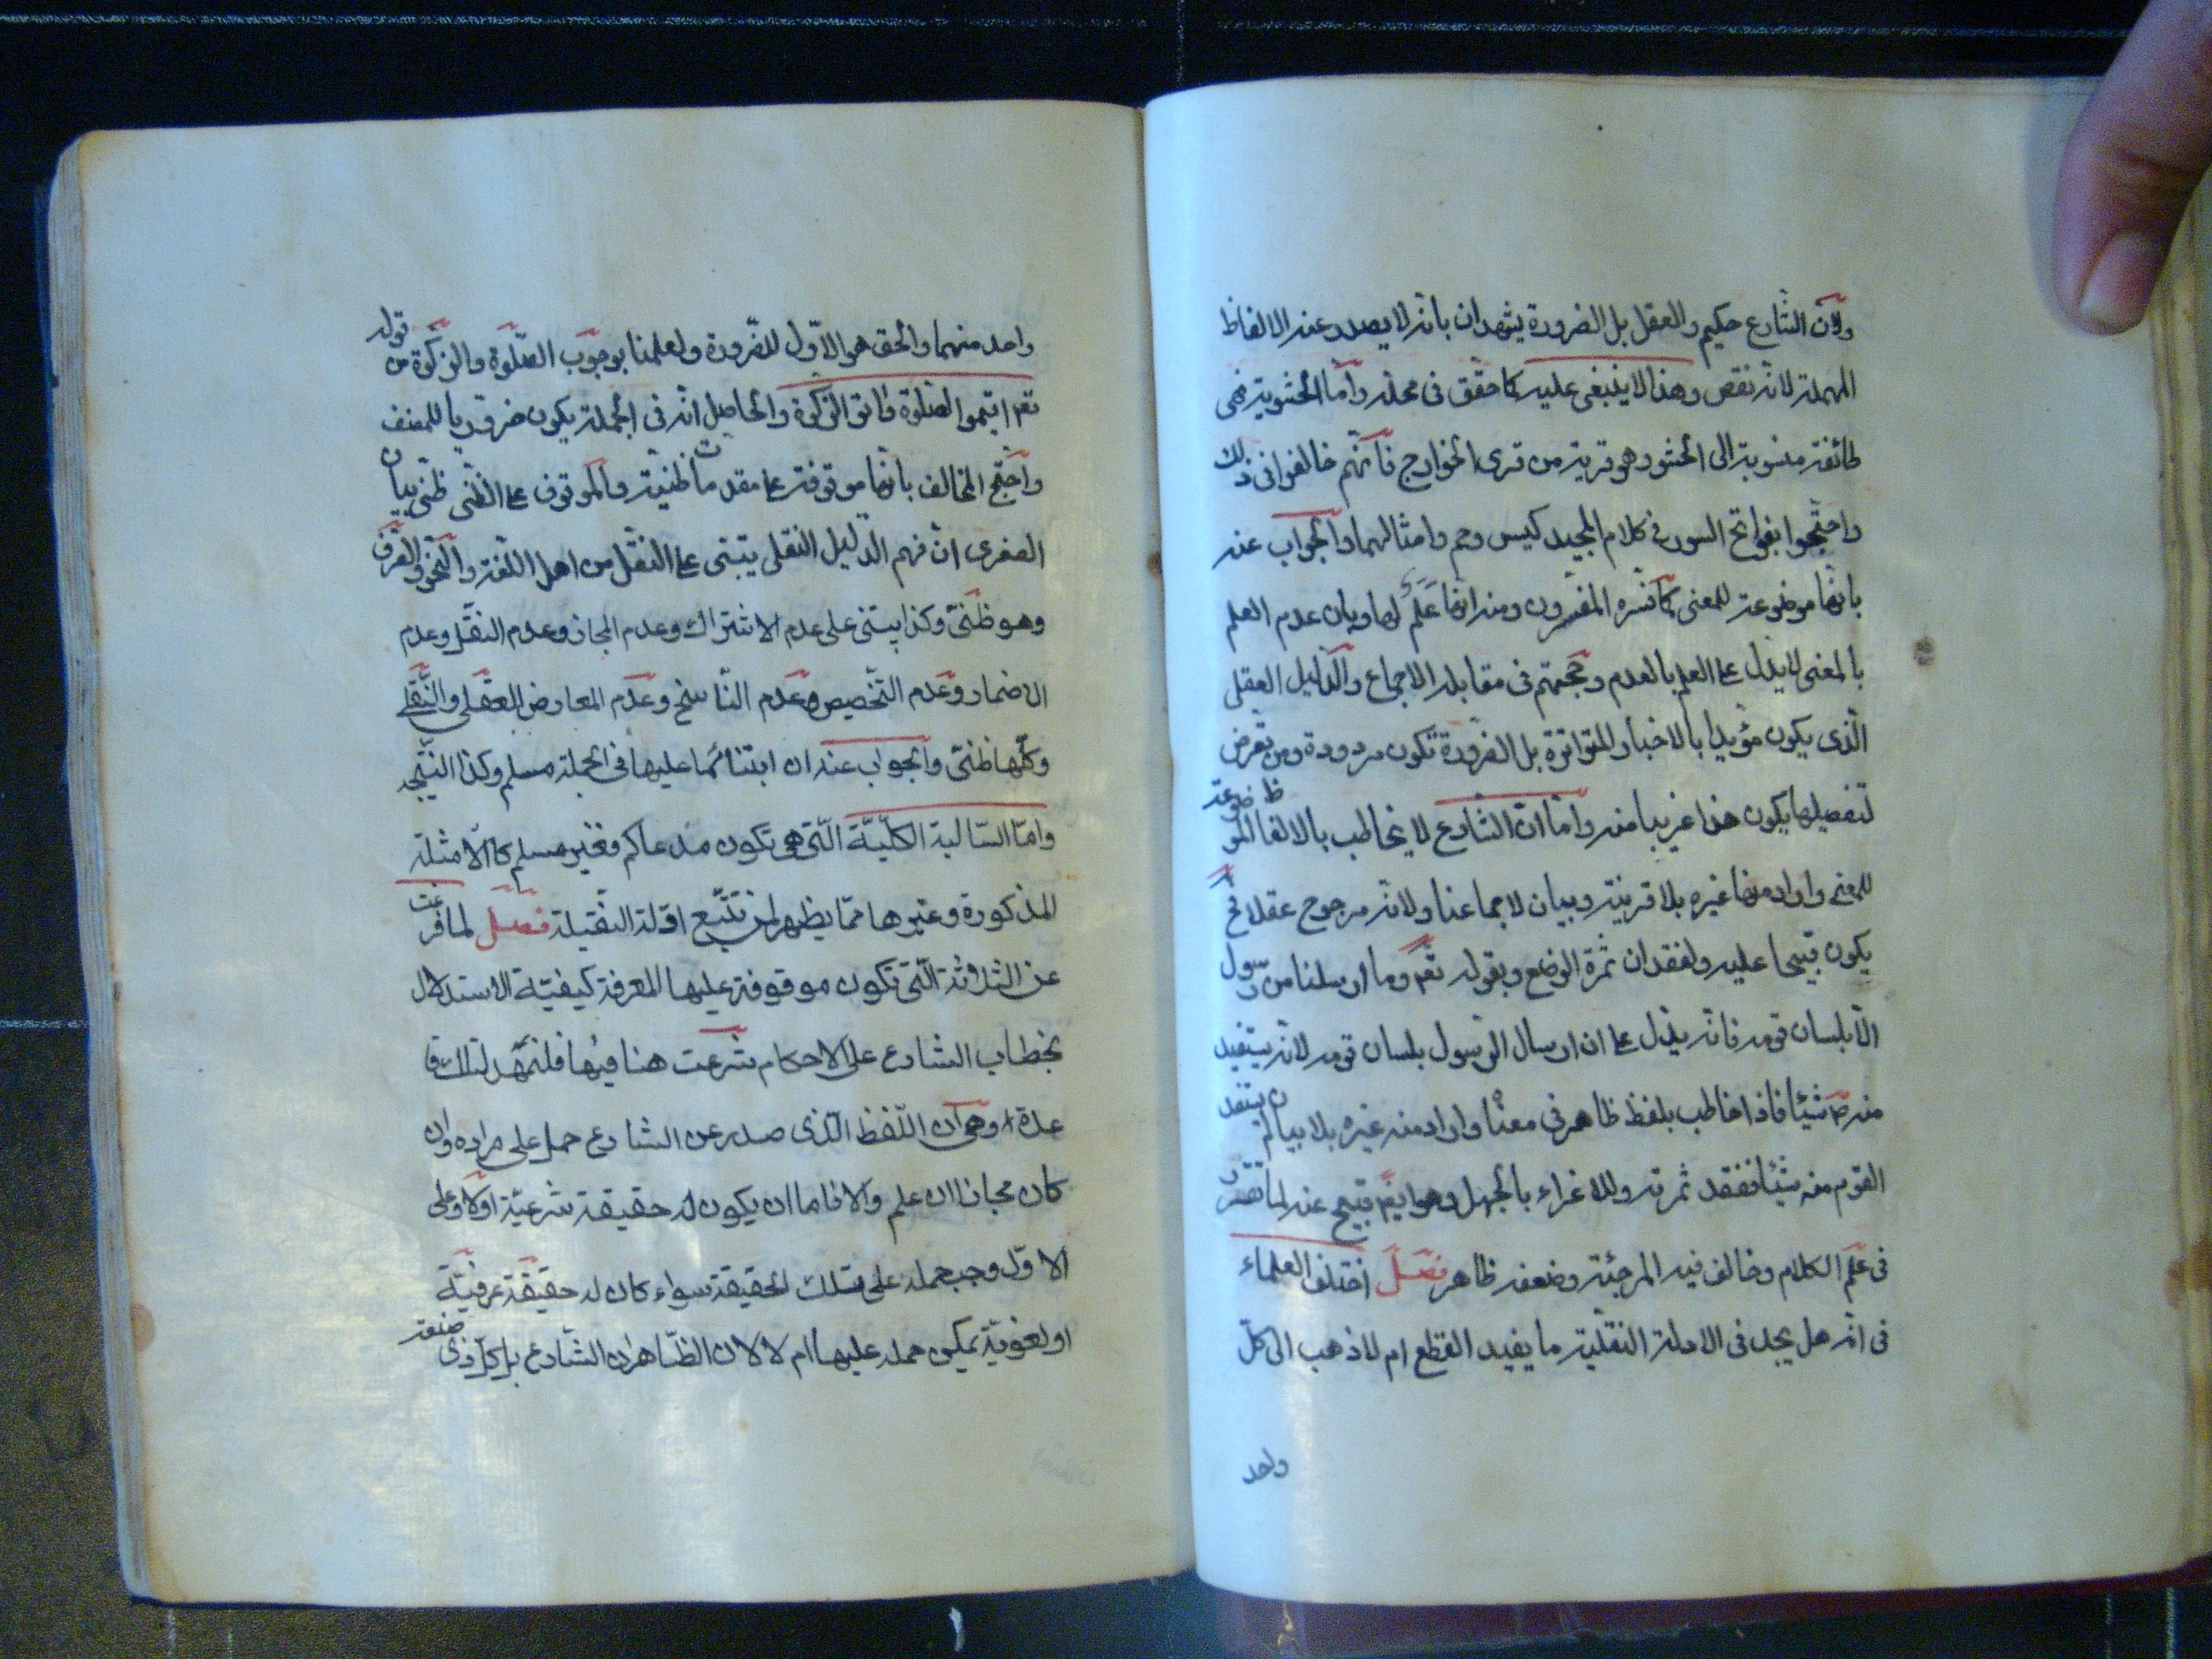 ولان الشارع حكيم والعقل بل الضرورة يشهدان بانه لا يصدر عنه الالفاظ
المهملة لانه نقص وهذا لا ينبغى عليه كما حقق فى محله واما الحشوية فهى
طائفة منسوبة الى الحشو وهو قرية من قرى الخوارج فانهم خالفوا فى ذلك
واحتجوا بفواتح السور فى كلام المجيد كيس وحم وامثالهما والجواب عنه
بانها موضوعة للمعنى كما فسره المفسرون ومنه انها علم لها وبان عدم العلم
بالمعنى لا يدل على العلم بالعدم وحجتهم فى مقابلة الاجماع والدليل العقلى
الذى يكون مؤيدا بالاخبار المتواترة بل الضرورة تكون مردودة ومن تعرض
لتفصيلها يكون هذا غريبا منه واما ان الشارع لا يخاطب بالالفاظ الموضوعة
للمعنى واراد منها غيره بلا قرينة وبيان لاجماعنا ولانه مرجوح عقلا فح
يكون قبيحا عليه ولفقدان ثمرة الوضع وبقوله تعم وما ارسلنا من رسول
الا بلسان قومه فانه يدل على ان ارسال الرسول بلسان قومه لانه يستفيد
منه صم شيئا فاذا خاطب بلفظ ظاهر فى معنا واراد منه غيره بلا بيان لم يستفد
القوم منه شيئا ففقد ثمرته وللاغراء بالجهل وهو ايضم قبيح عنه لما تقرر
فى علم الكلام وخالف فيه المرجئة وضعفه ظاهر فصل اختلف العلماء
فى انه هل يجد فى الادلة النقلية ما يفيد القطع ام لا ذهب الى كل
واحد
واحد منهما والحق هو الاول للضرورة ولعلمنا بوجوب الصلوة والزكوة من قوله
تعم اقيموا الصلوة واتوا الزكوة والحاصل انه فى الجملة يكون ضروريا للمصنف
واحتج المخالف بانها موقوفة على مقدمات ظنية والموقوف على الظنى ظنى بيان
الصغرى ان فهم الدليل النقلى يبتنى على النقل من اهل اللغة والنحو والصرف
وهو ظنى وكذا يبتنى على عدم الاشتراك وعدم المجاز وعدم النقل وعدم
الاضمار وعدم التخصيص وعدم الناسخ وعدم المعارض العقلى والنقلى
وكلها ظنى والجواب عنه ان ابتنائها عليها فى الجملة مسلم وكذا النتيجه
واما السالبة الكلية التى هى تكون مدعاكم فغير مسلم كالامثلة
المذكورة وغيرها مما يظهر لمن تتبع ادلة النقيلة فصل لما فرغت
عن الثلاثة التى تكون موقوفة عليها لمعرفة كيفية الاستدلال
بخطاب الشارع على الاحكام شرعت هنا فيها فلنمهد لتلك قا
عدة وهى ان اللفظ الذى صدر عن الشارع حمل على مراده وان
كان مجازا ان علم والا فاما ان يكون له حقيقة شرعية اولا وعلى
الاول وجب حمله على تلك الحقيقة سواء كان له حقيقة عرفية
او لغوية يمكن حمله عليها ام لا لان الظاهر ان الشارع بل كل ذى صنعة